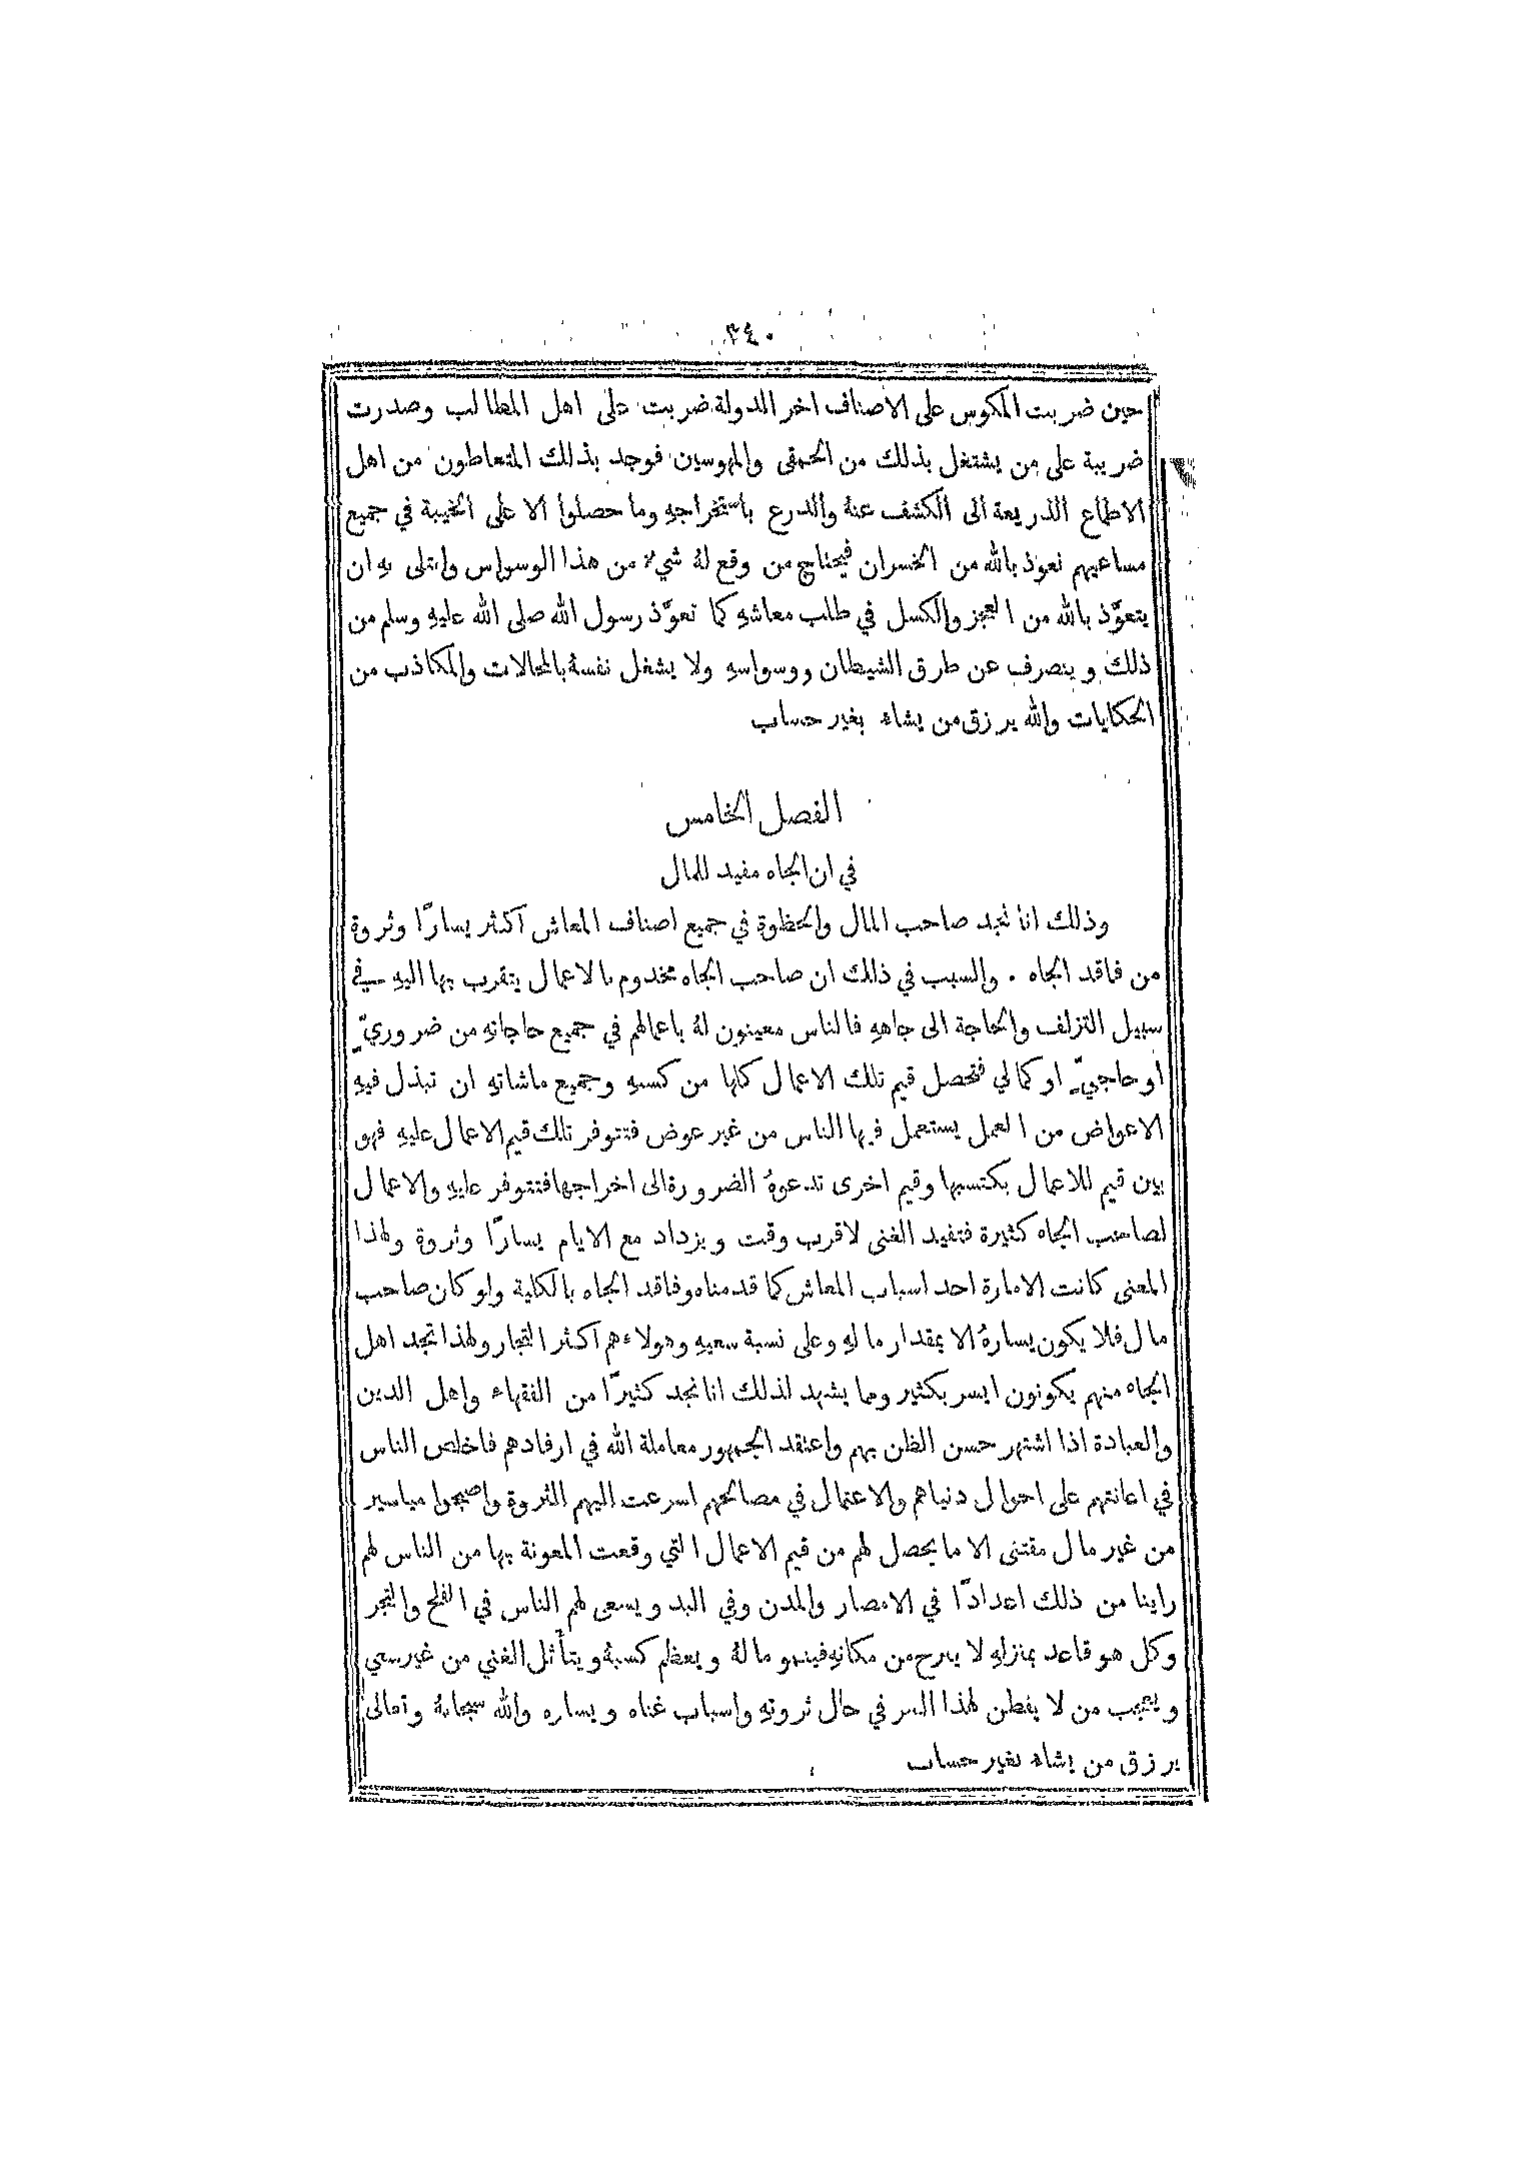 ٣٤٠
حين ضربت المكوس على الاصناف اخر الدولة ضربت على اهل المطالب وصدرت
ضريبة على من يشتغل بذلك من الحمقى والمهوسين فوجد بذلك المتعاطون من اهل
الاطماع الذريعة الى الكشف عنهُ والدرع باستخراجهِ وما حصلوا الا على الخيبة في جميع
مساعيهم نعوذ بالله من الخسران فيحتاج من وقع لهُ شيءٌ من هذا الوسواس وابتلى بهِ ان
يتعوّذ بالله من العجز والكسل في طلب معاشهِ كما تعوّذ رسول الله صلى الله عليهِ وسلم من
ذلك وينصرف عن طرق الشيطان ووسواسهِ ولا يشغل نفسهُ بالمحالات والمكاذب من
الحكايات والله يرزق من يشاء بغير حساب
الفصل الخامس
في ان الجاه مفيد للمال
وذلك انا نجد صاحب المال والحظوة في جميع اصناف المعاش اكثر يسارًا وثروة
من فاقد الجاه . والسبب في ذلك ان صاحب الجاه مخدوم بالاعمال يتقرب بها اليهِ في
سبيل التزلف والحاجة الى جاههِ فالناس معينون لهُ باعمالهم في جميع حاجاتهِ من ضروريّ
او حاجيّ او كمالي فتحصل قيم تلك الاعمال كلها من كسبهِ وجميع ماشاتهِ ان تبذل فيهِ
الاعواض من العمل يستعمل فيها الناس من غير عوض فتتوفر تلك قيم الاعمال عليهِ فهو
بين قيم للاعمال يكتسبها وقيم اخرى تدعوهُ الضرورة الى اخراجها فتتوفر عليهِ والاعمال
لصاحب الجاه كثيرة فتفيد الغنى لاقرب وقت ويزداد مع الايام يسارًا وثروة ولهذا
المعنى كانت الامارة احد اسباب المعاش كما قدمناه وفاقد الجاه بالكلية ولو كان صاحب
مال فلا يكون يسارهُ الا بمقدار مالهِ وعلى نسبة سعيهِ وهولاء هم اكثر التجار ولهذا تجد اهل
الجاه منهم يكونون ايسر بكثير ومما يشهد لذلك انا نجد كثيرًا من الفقهاء واهل الدين
والعبادة اذا اشتهر حسن الظن بهم واعتقد الجمهور معاملة الله في ارفادهم فاخلص الناس
في اعانتهم على احوال دنياهم والاعتمال في مصالحهم اسرعت اليهم الثروة واصبحوا مياسير
من غير مال مقتنى الا ما يحصل لهم من قيم الاعمال التي وقعت المعونة بها من الناس لهم
راينا من ذلك اعدادًا في الامصار والمدن وفي البد ويسعى لهم الناس في الفلح والتجر
وكل هو قاعد بمنزلهِ لا يبرح من مكانهِ فينمو مالهُ ويعظم كسبهُ ويتأثل الغني من غير سعي
ويعجب من لا يفطن لهذا السر في حال ثروتهِ واسباب غناه ويساره والله سبحانهُ وتعالى
يرزق من يشاء بغير حساب